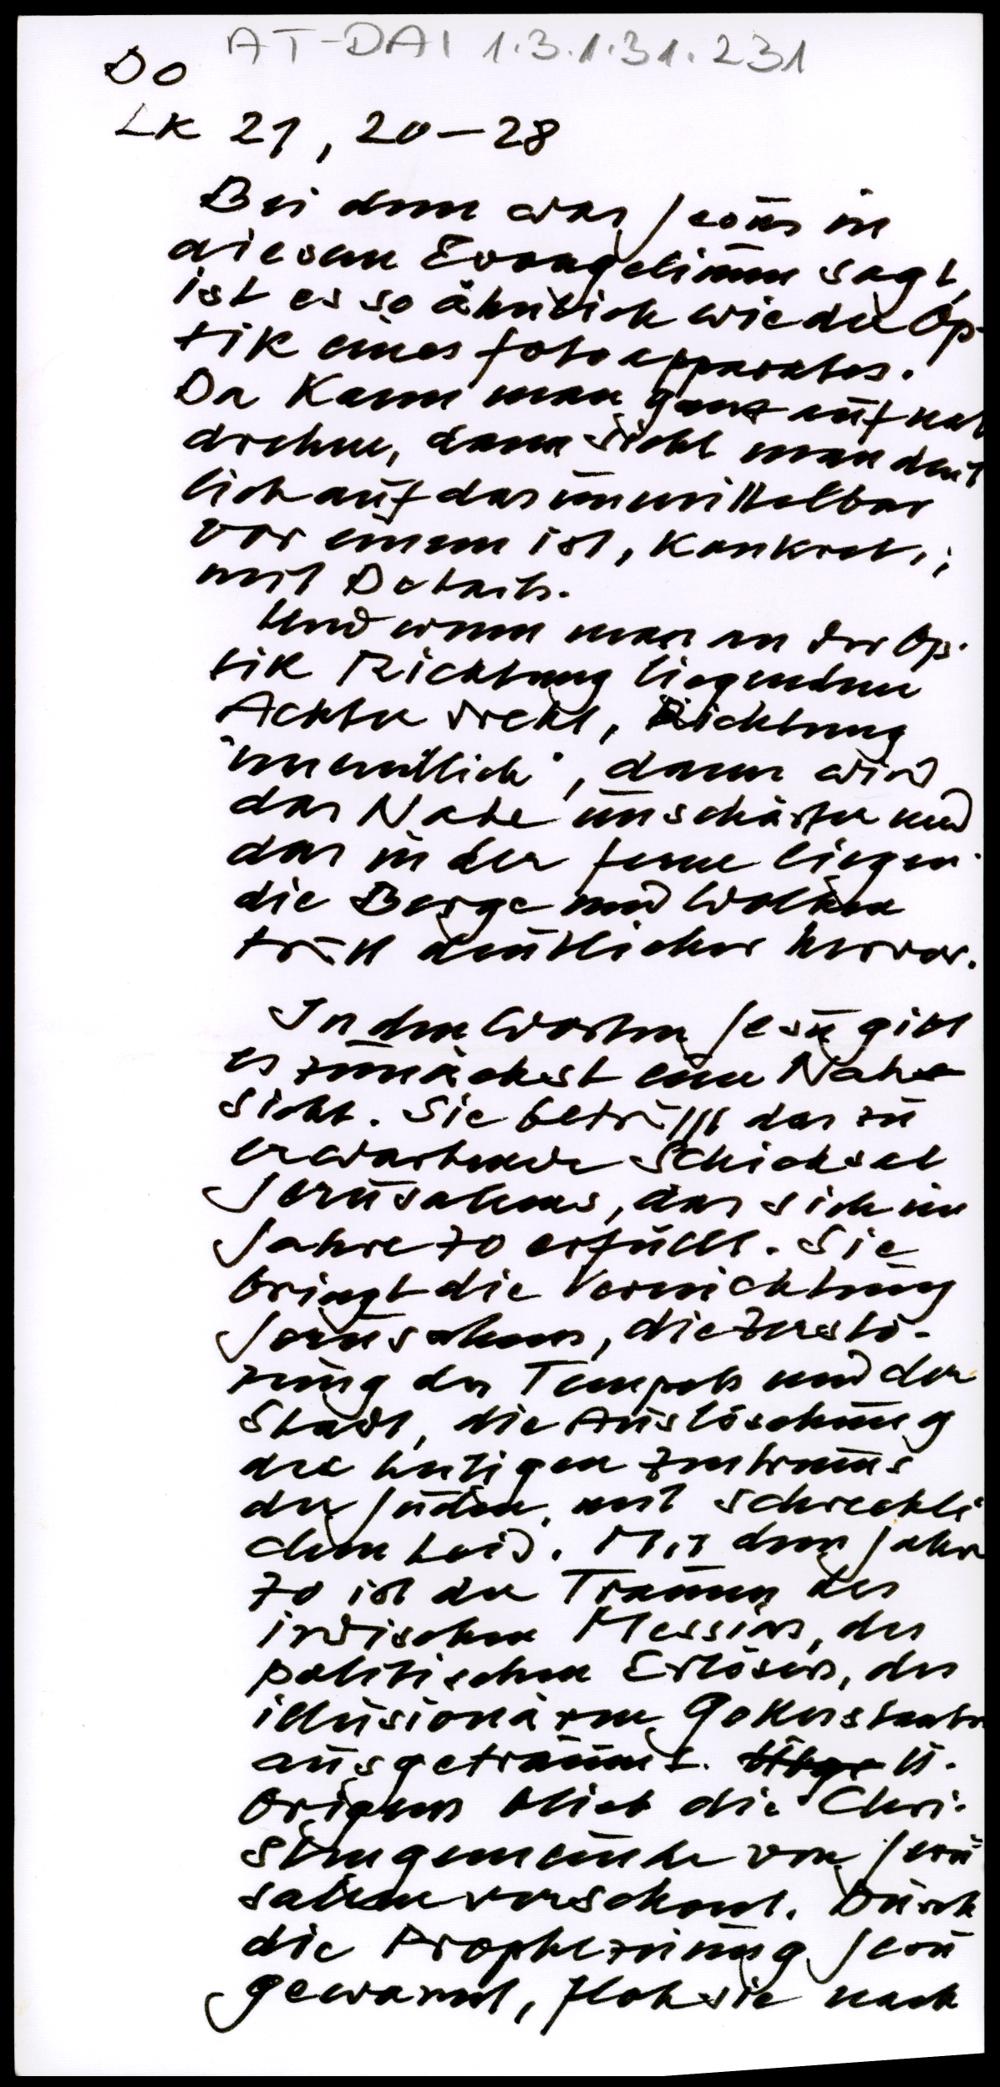 AT-DAI 1.3.1.31.231
Do
Lk 21, 20–28
Bei dem was Jesus in
diesem Evangelium sagt,
ist es so ähnlich wie der Op-
tik eines Fotoapparates.
Da kann man ganz auf nah
drehen, dann sieht man deut
lich auf das unmittelbar
vor einem ist, konkret,
mit Details.
Und wenn man an der Op-
tik Richtung liegenden
Achter dreht, Richtung
"unendlich", dann wird
das Nahe unschärfer und
das in der Ferne liegen-
die Berge und Wolken
tritt deutlicher hervor.
In den Worten Jesu gibt
es zunächst eine Nah-
sicht. Sie betrifft das zu
erwartende Schicksal
Jerusalems, das sich im
Jahre 70 erfüllt. Sie
bringt die Vernichtung
Jerusalems, die Zerstö-
rung des Tempels und der
Stadt, die Auslöschung
des hutigen Zentrums
der Juden, mit schreckli
chem Leid. Mit dem Jahr
70 ist der Traum des
irdischen Messias, des
politischen Erlösers, des
illusionären Gottesstaates
ausgeträumt. Ü-
brigens blieb die Chri-
stengemeinde von Jeru
salem verschont. Durch
die Prophezeiung Jesu
gewarnt, floh sie nach